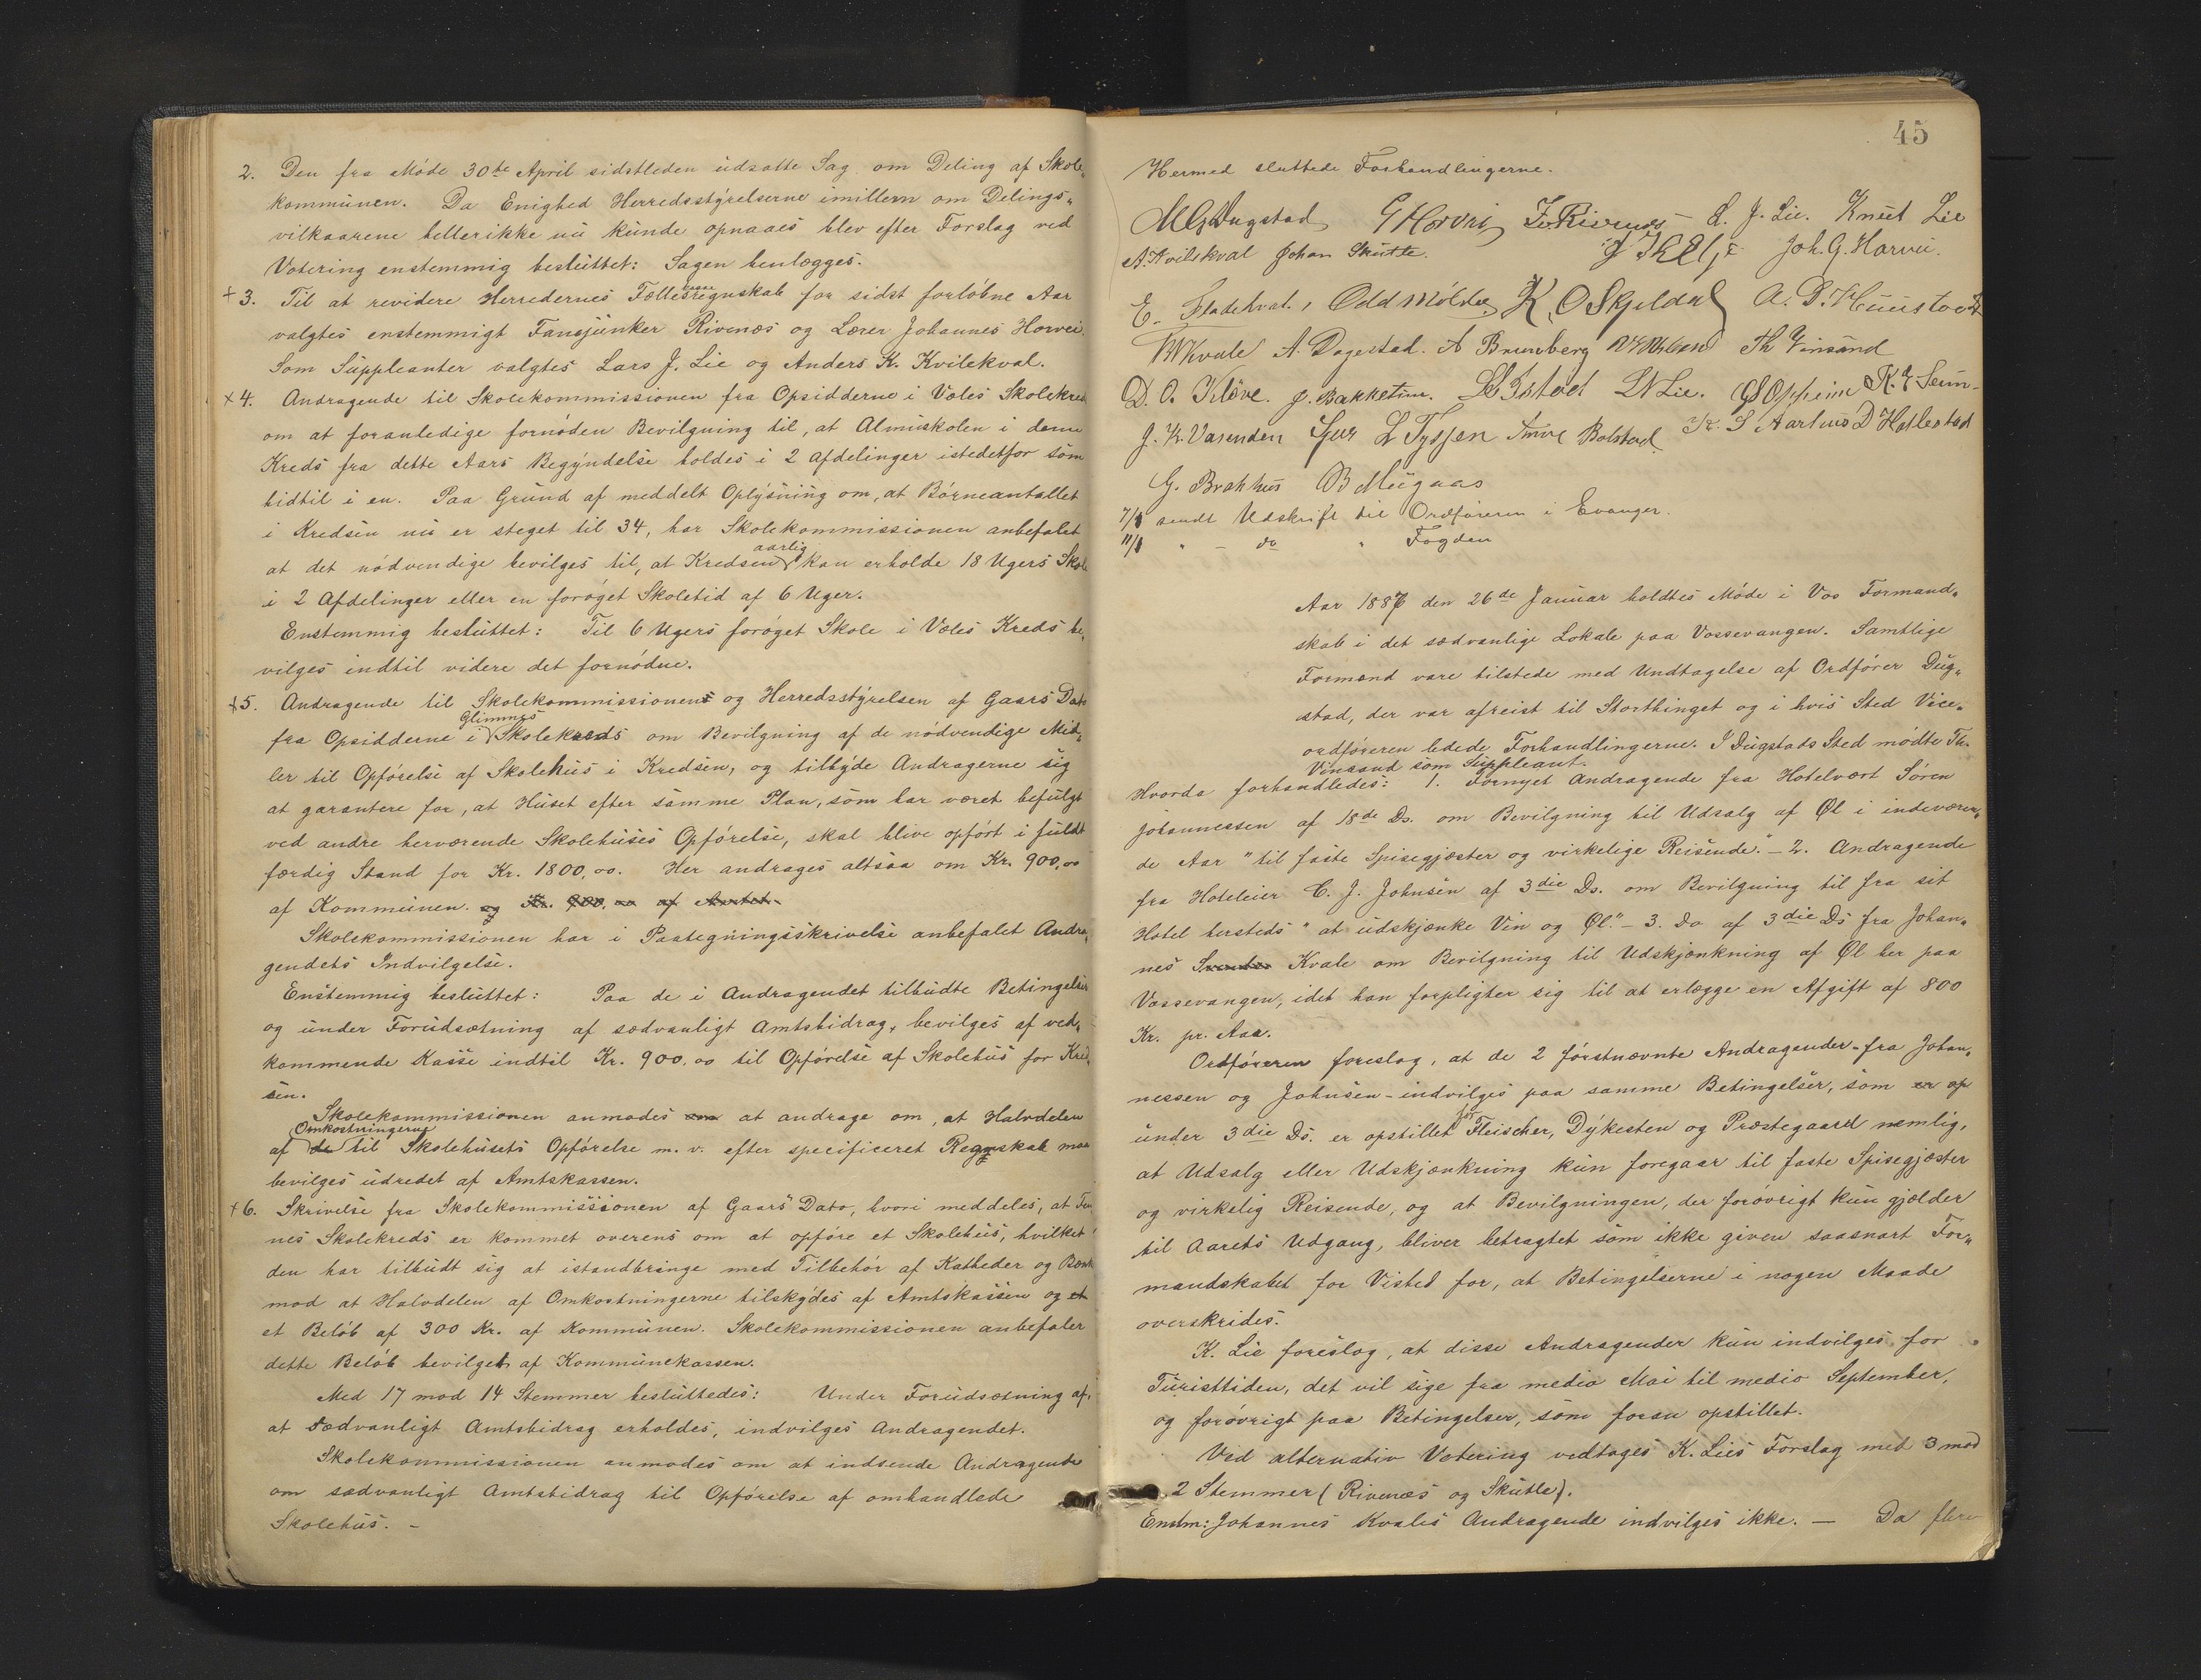 2. Den fra Møde 30te April sidstleden udsatte Sag om Deling af Skole„
kommunen. Da Enighed Herredsstyrelserne imillem om Delings„
vilkaarene hellerikke nu kunde opnaaes blev efter Forslag ved
Votering enstemmig besluttet: Sagen henlægges.
+ 3. Til at revidere Herredernes Fællesregnskab for sidst forløbne Aar
valgtes enstemmigt Fanejunker Rivenæs og Lærer Johannes Horvei.
Som Suppleanter valgtes Lars J. Lie og Anders K. Kvilekval.
+ 4. Andragende til Skolekommissionen fra Opsidderne i Væles Skolekred
om at foranledige fornøden Bevilgning til, at Almuskolen i denne
Kreds fra dette Aars Begyndelse holdes i 2 Afdelinger istedetfor som
hidtil i en. Paa Grund af meddelt Oplysning om, at Børneantallet
i Kredsen nu er steget til 34, har Skolekommissionen anbefalet
at det nødvendige bevilges til, at Kredsen aarlig kan erholde 18 Ugers Skole
i 2 Afdelinger eller en forøget Skoletid af 6 Uger.
Enstemmig besluttet: Til 6 Ugers forøget Skole i Væles Kreds be„
vilges indtil videre det fornødne.
+5. Andragende til Skolekommissionen og Herredsstyrelsen af Gaars Dato
fra Opsidderne i Glimmes Skolekreds om Bevilgning af de nødvendige Mid„
ler til Opførelse af Skolehus i Kredsen, og tilbyde Andragerne sig
at garantere for, at Huset efter samme Plan, som har været befulgt
ved andre herværende Skolehuses Opførelse, skal blive opført i fuldt
færdig Stand for Kr. 1800,00. Her andrages altsaa om Kr. 900,00
af Kommunen. og Kr. 900,00 af Amtet.
Skolekommissionen har i Paategningsskrivelse anbefalet Andra„
gendets Indvilgelse.
Enstemmig besluttet: Paa de i Andragendet tilbudte Betingelser
og under Forudsætning af sædvanligt Amtsbidrag, bevilges af ved„
kommende Kasse indtil Kr. 900,00 til Opførelse af Skolehus for Kred„
sen.
Skolekommissionen anmodes om at andrage om, at Halvdelen
af de Omkostningerne til Skolehusets Opførelse m. v. efter specificeret Regnskab maa
bevilges udredet af Amtskassen.
+ 6. Skrivelse fra Skolekommissionen af Gaars Dato, hvori meddeles, at
nes Skolekreds er kommet overens om at opføre et Skolehus, hvilket
den har tilbudt sig at istandbringe med Tilbehør af Katheder og Bænke
mod at Halvdelen af Omkostningerne tilskydes af Amtskassen og et
et Beløb af 300 Kr. af Kommunen. Skolekommissionen anbefaler
dette Beløb bevilget af Kommunekassen.
Med 17 mod 14 Stemmer besluttedes: Under Forudsætning af,
at sædvanligt Amtsbidrag erholdes, indvilges Andragendet.
Skolekommissionen anmodes om at indsende Andragende
om sædvanligt Amtsbidrag til Opførelse af omhandlede
Skolehus. –
45
Hermed sluttede Forhandlingerne.
M G Dugstad G Horvei Rivenæs L. J. Lie. Knut Lie
A. Kvilekval Johan Skutle. Joh. G. Horvei.
E. Fladekval, Odd Mølster K. O Skjeldal A. D.
Kvale A. Dagestad. A Brunborg Th Vinsand
D. O. Kløve. J. Bakketun. L N Lie. K. E Seim
J. K. Vasenden Sjur L Tyssen Bolstad S Aarhus D Hellestad
G. Brekhus B Mugaas
7/1 sendt Udskrift til Ordføreren i Evanger.
11/1 " – do " Fogden
Aar 1887 den 26de Januar holdtes Møde i Vos Formand„
skab i det sædvanlige Lokale paa Vossevangen. Samtlige
Formænd vare tilstede med Undtagelse af Ordfører Dug„
stad, der var afreist til Storthinget og i hvis Sted Vice„
ordføreren ledede Forhandlingerne. I Dugstads Sted mødte Th.
Vinsand som Suppleant.
Hvorda forhandledes: 1. Fornyet Andragende fra Hotelvært Søren
Johannessen af 18de Ds. om Bevilgning til Udsalg af Øl i indeværen„
de Aar "til faste Spisegjæster og virkelige Reisende." – 2. Andragende
fra Hoteleier C. J. Johnsen af 3die Ds. om Bevilgning til fra sit
Hotel hersteds "at udskjænke Vin og Øl." – 3. Do af 3die Ds fra Johan„
nes Kvale om Bevilgning til Udskjænkning af Øl her paa
Vossevangen, idet han forpligter sig til at erlægge en Afgift af 800
Kr. pr. Aar.
Ordføreren foreslog, at de 2 førstnævnte Andragender – fra Johan„
nessen og Johnsen – indvilges paa samme Betingelser, som er op
under 3die Ds. er opstillet for Fleischer, Dykesten og Præstegaard nemlig,
at Udsalg eller Udskjænkning kun foregaar til faste Spisegjæster
og virkelig Reisende, og at Bevilgningen, der forøvrigt kun gjælder
til Aarets Udgang, bliver betragtet som ikke given saasnart For„
mandskabet for Visted for, at Betingelserne i nogen Maade
overskrides.
K. Lie foreslog, at disse Andragender kun indvilges for
Turisttiden, det vil sige fra medio Mai til medio September,
og forøvrigt paa Betingelser, som foran opstillet.
Ved alternativ Votering vedtoges K. Lies Forslag med 3 mod
2 Stemmer (Rivenæs og Skutle).
Enstm: Johannes Kvales Andragende indvilges ikke. — Da flere